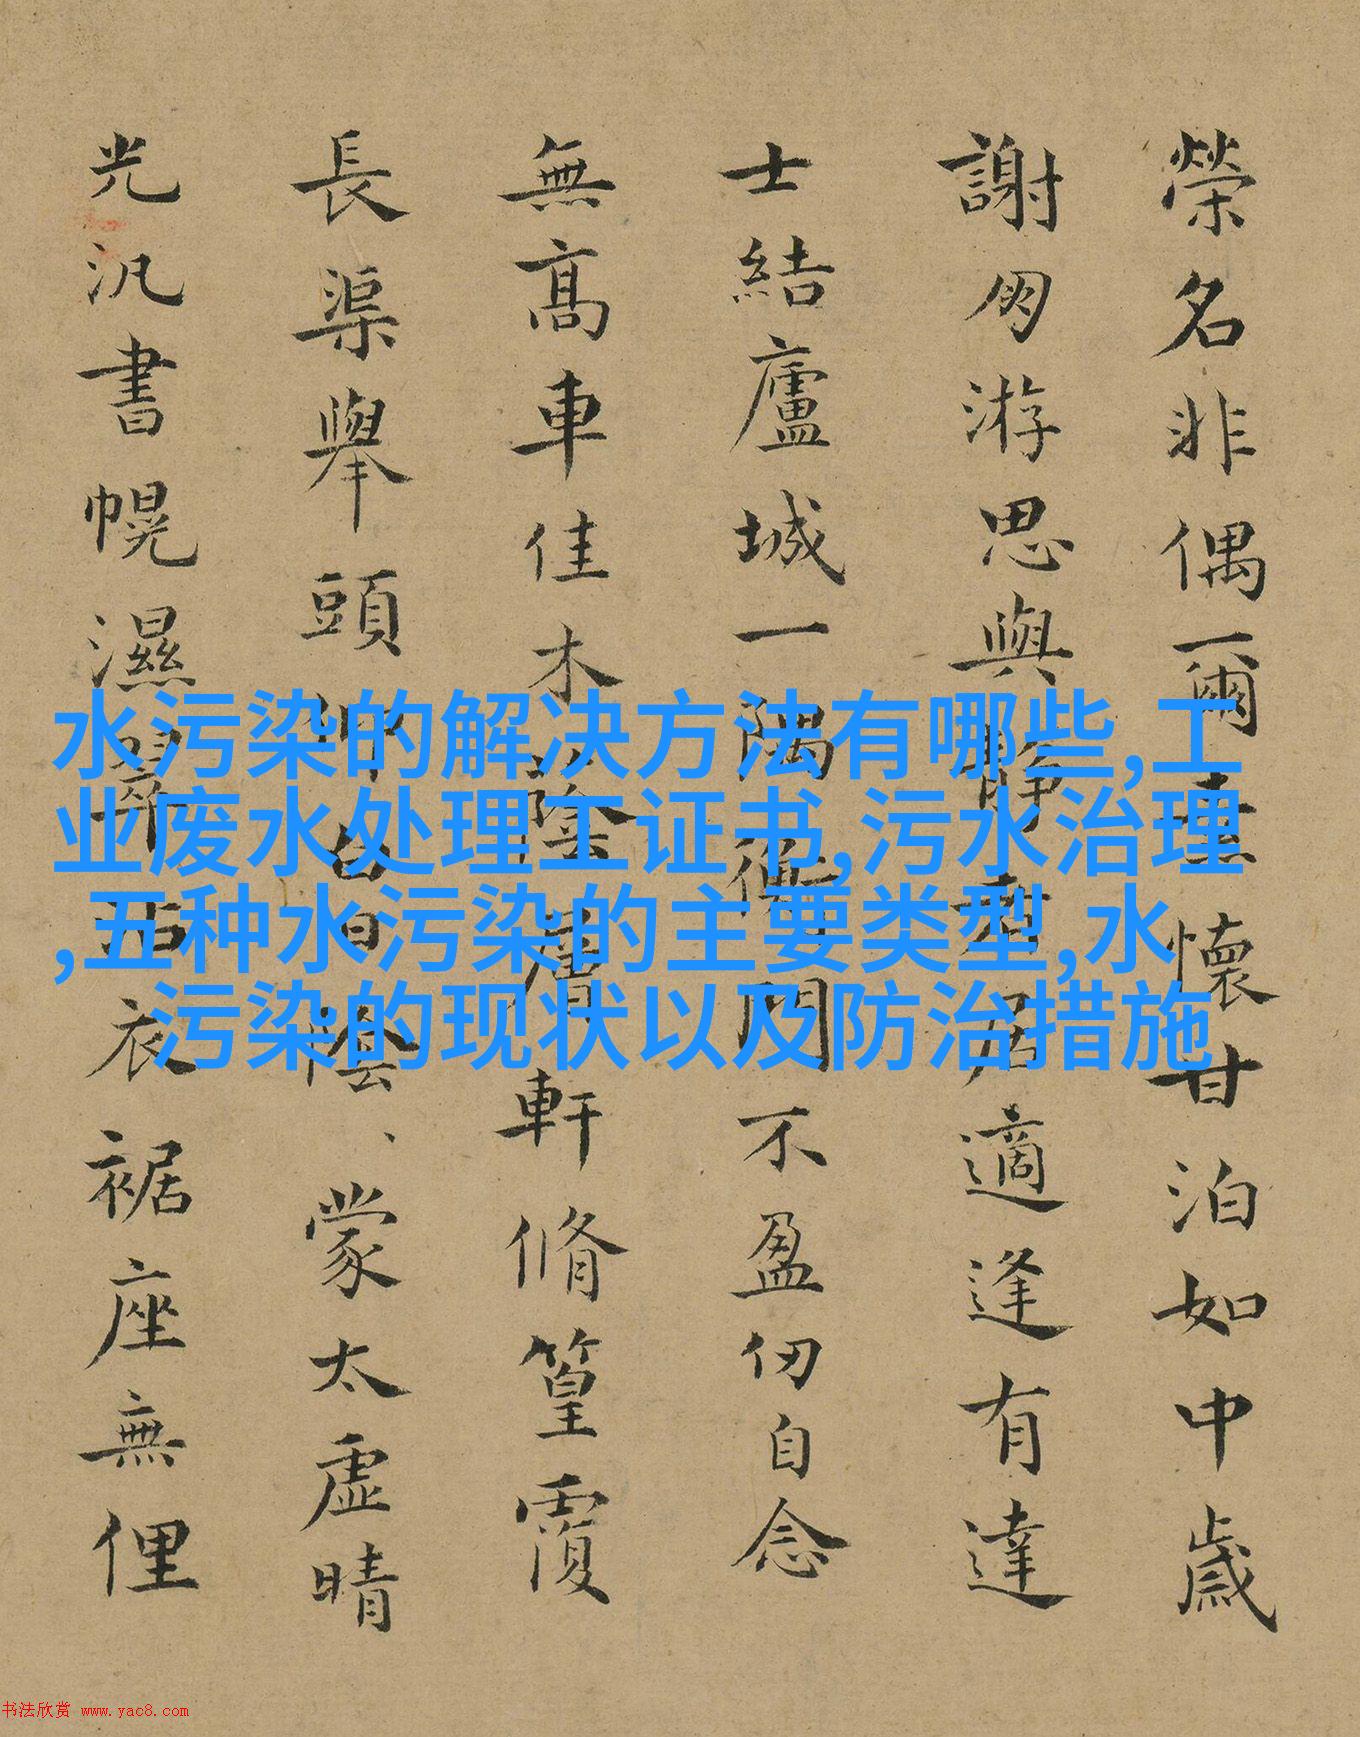 榮名非偶爾素懷甘泊如中歲
謝朋游思與靜居適逢有達
士結廬城一隅閒不盈仞自念
無髙車佳木蔭軒脩篁覆
長渠舉頭仰白日陰蒙太虛晴
光汎書幌濕翠沾衣裾座無俚
水污染的解决方法有哪些,工
业废水处理工证书,污水治理
,五种水污染的主要类型,水
污染的现状以及防治措施
书法欣赏 www.yac8.com